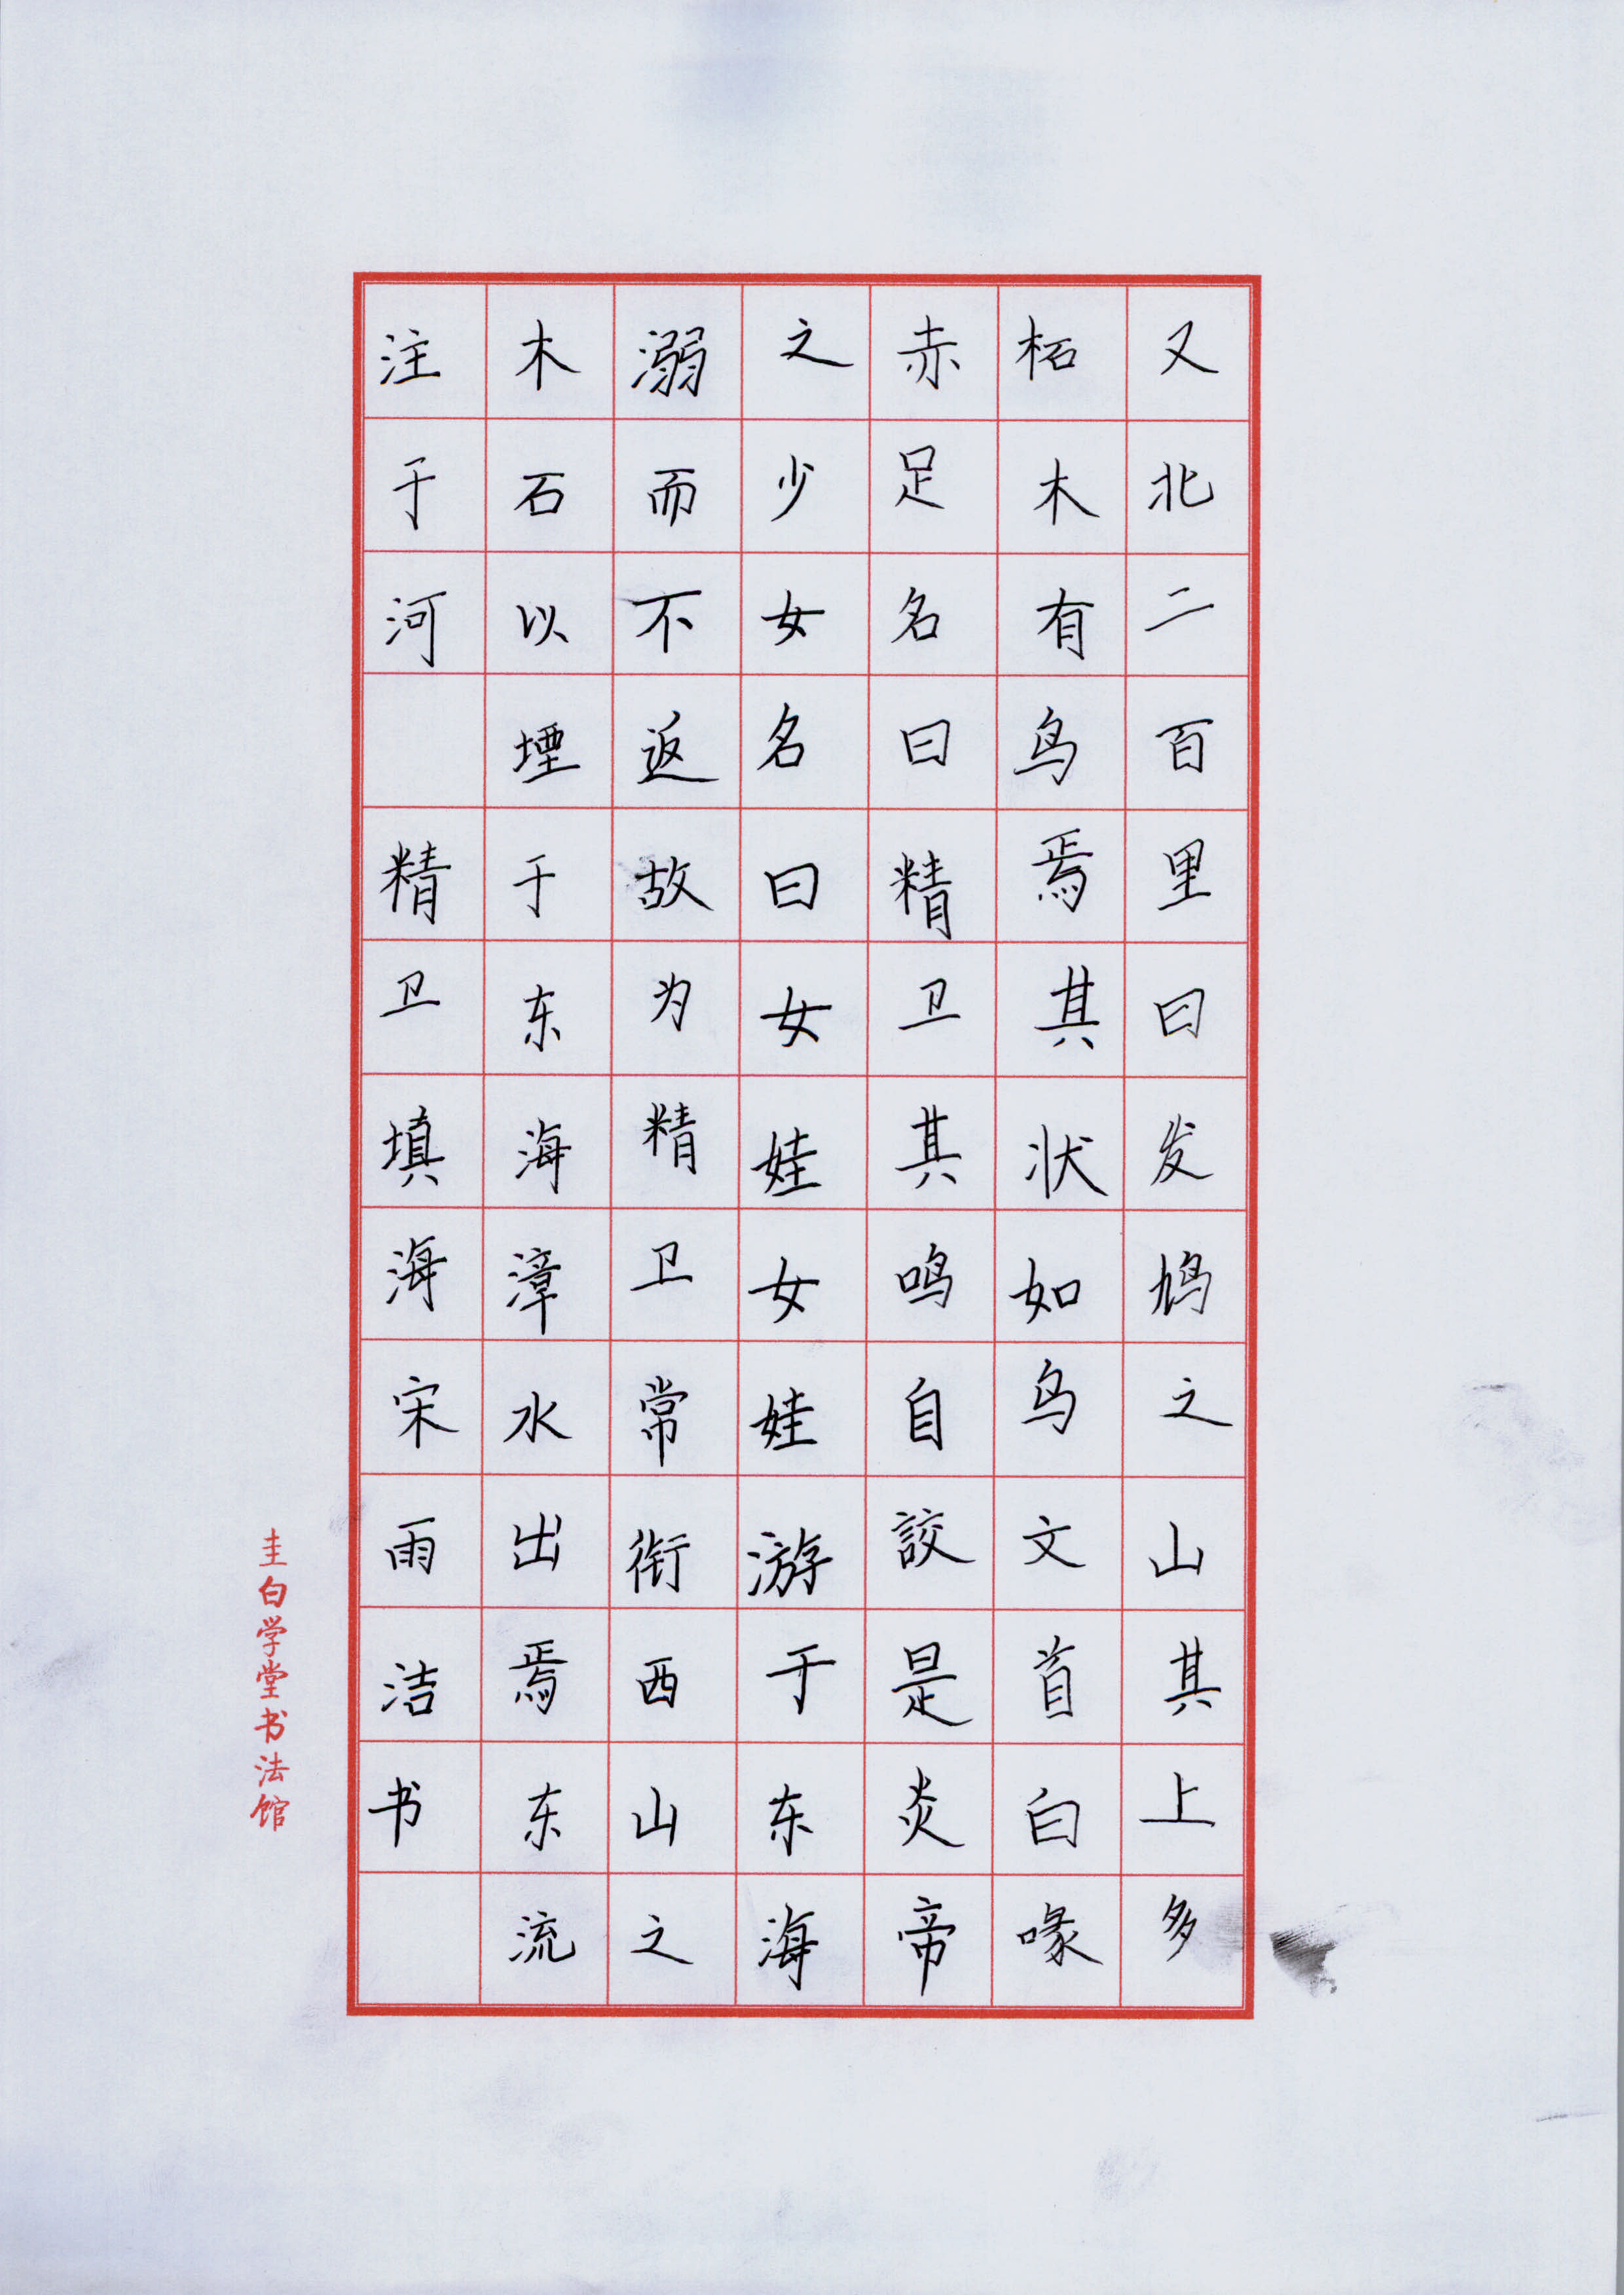 又北二百里曰发鸠之山其上多
柘木有鸟焉其状如乌文首白喙
赤足名曰精卫其鸣自詨是炎帝
之少女名曰女娃女娃游于东海
溺而不返故为精卫常衔西山之
木石以堙于东海漳水出焉东流
注于河 精卫填海宋雨洁书
圭白学堂书法馆